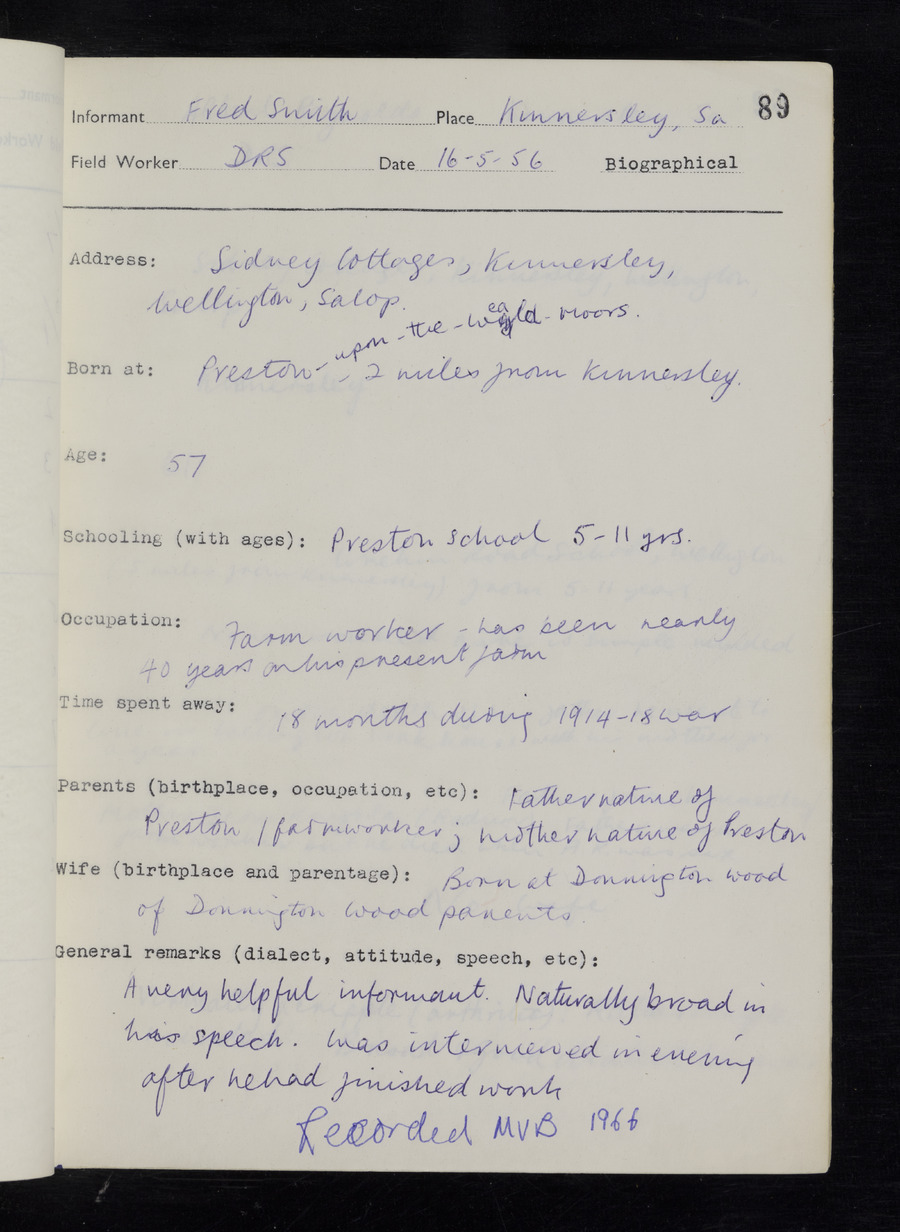 Informant Fred Smith Place Kinnersley, Sa 89
Field Worker DRS Date 16-5-56 Biographical
Address: Sidney Cottages, Kinnersley,
Wellington, Salop.
Born at: Preston-upon-the-weald-moors. - 2 miles from Kinnersley.
Age: 57
Schooling (with ages): Preston School 5-11 yrs.
Occupation: Farm worker - has been nearly
40 years on his present farm
Time spent away: 18 months during 1914-18 war
Parents (birthplace, occupation, etc): Father native of
Preston / farmworker; mother native of Preston
Wife (birthplace and parentage): Born at Donnington Wood
of Donnington Wood parents.
General remarks (dialect, attitude, speech, etc):
A very helpful informant. Naturally broad in
his speech. Was interviewed in evening
after he had finished work
Recorded MVB 1966